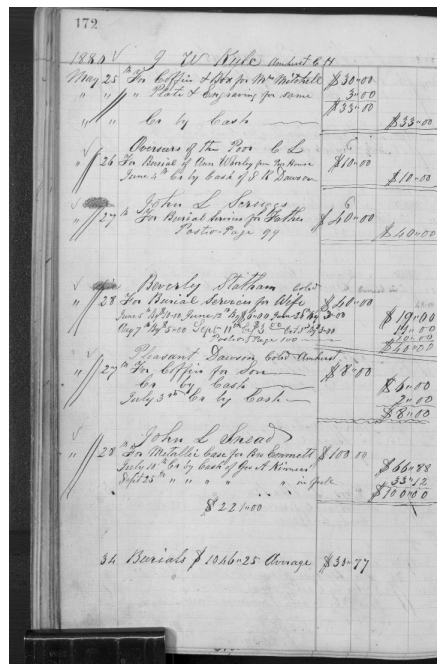 172
1880 J W Kyle Amherst C H
May 25th For Coffin & Box for Mrs Mitchell $30"00
" " " Plate & Engraving for same 3"00
$33"00
" " Cr by Cash $33"00
Overseers of the Poor C L
" 26 For Burial of from Poor House $10"00
June 4th Cr by Cash of S R Dawson $10"00
John L Scruggs
" 27th For Burial Services for Father $40"00
Postio Page 99 $40"00
Beverly Statham Cold
" 28 For Burial Services for Wife $40"00
June 5th 3"00 June 12th 6"00 June 28th 3"00 $19"00
Aug 7th 5"00 Sept 11th 3"00 Oct
Postio Page 100 $40"00
Pleasant Dawson Cold Amherst
" 27th For Coffin for Son $8"00
Cr by Cash $6"00
July 3rd Cr by Cash 2"00
$8"00
John L Snead
" 28th For Metallic Case for $100"00
July 10th Cr by Cash of Geo A $66"88
Sept 25th " " " " " in full 33"12
$100"00
$221"00
34 Burials $1046"25 Average $30"77